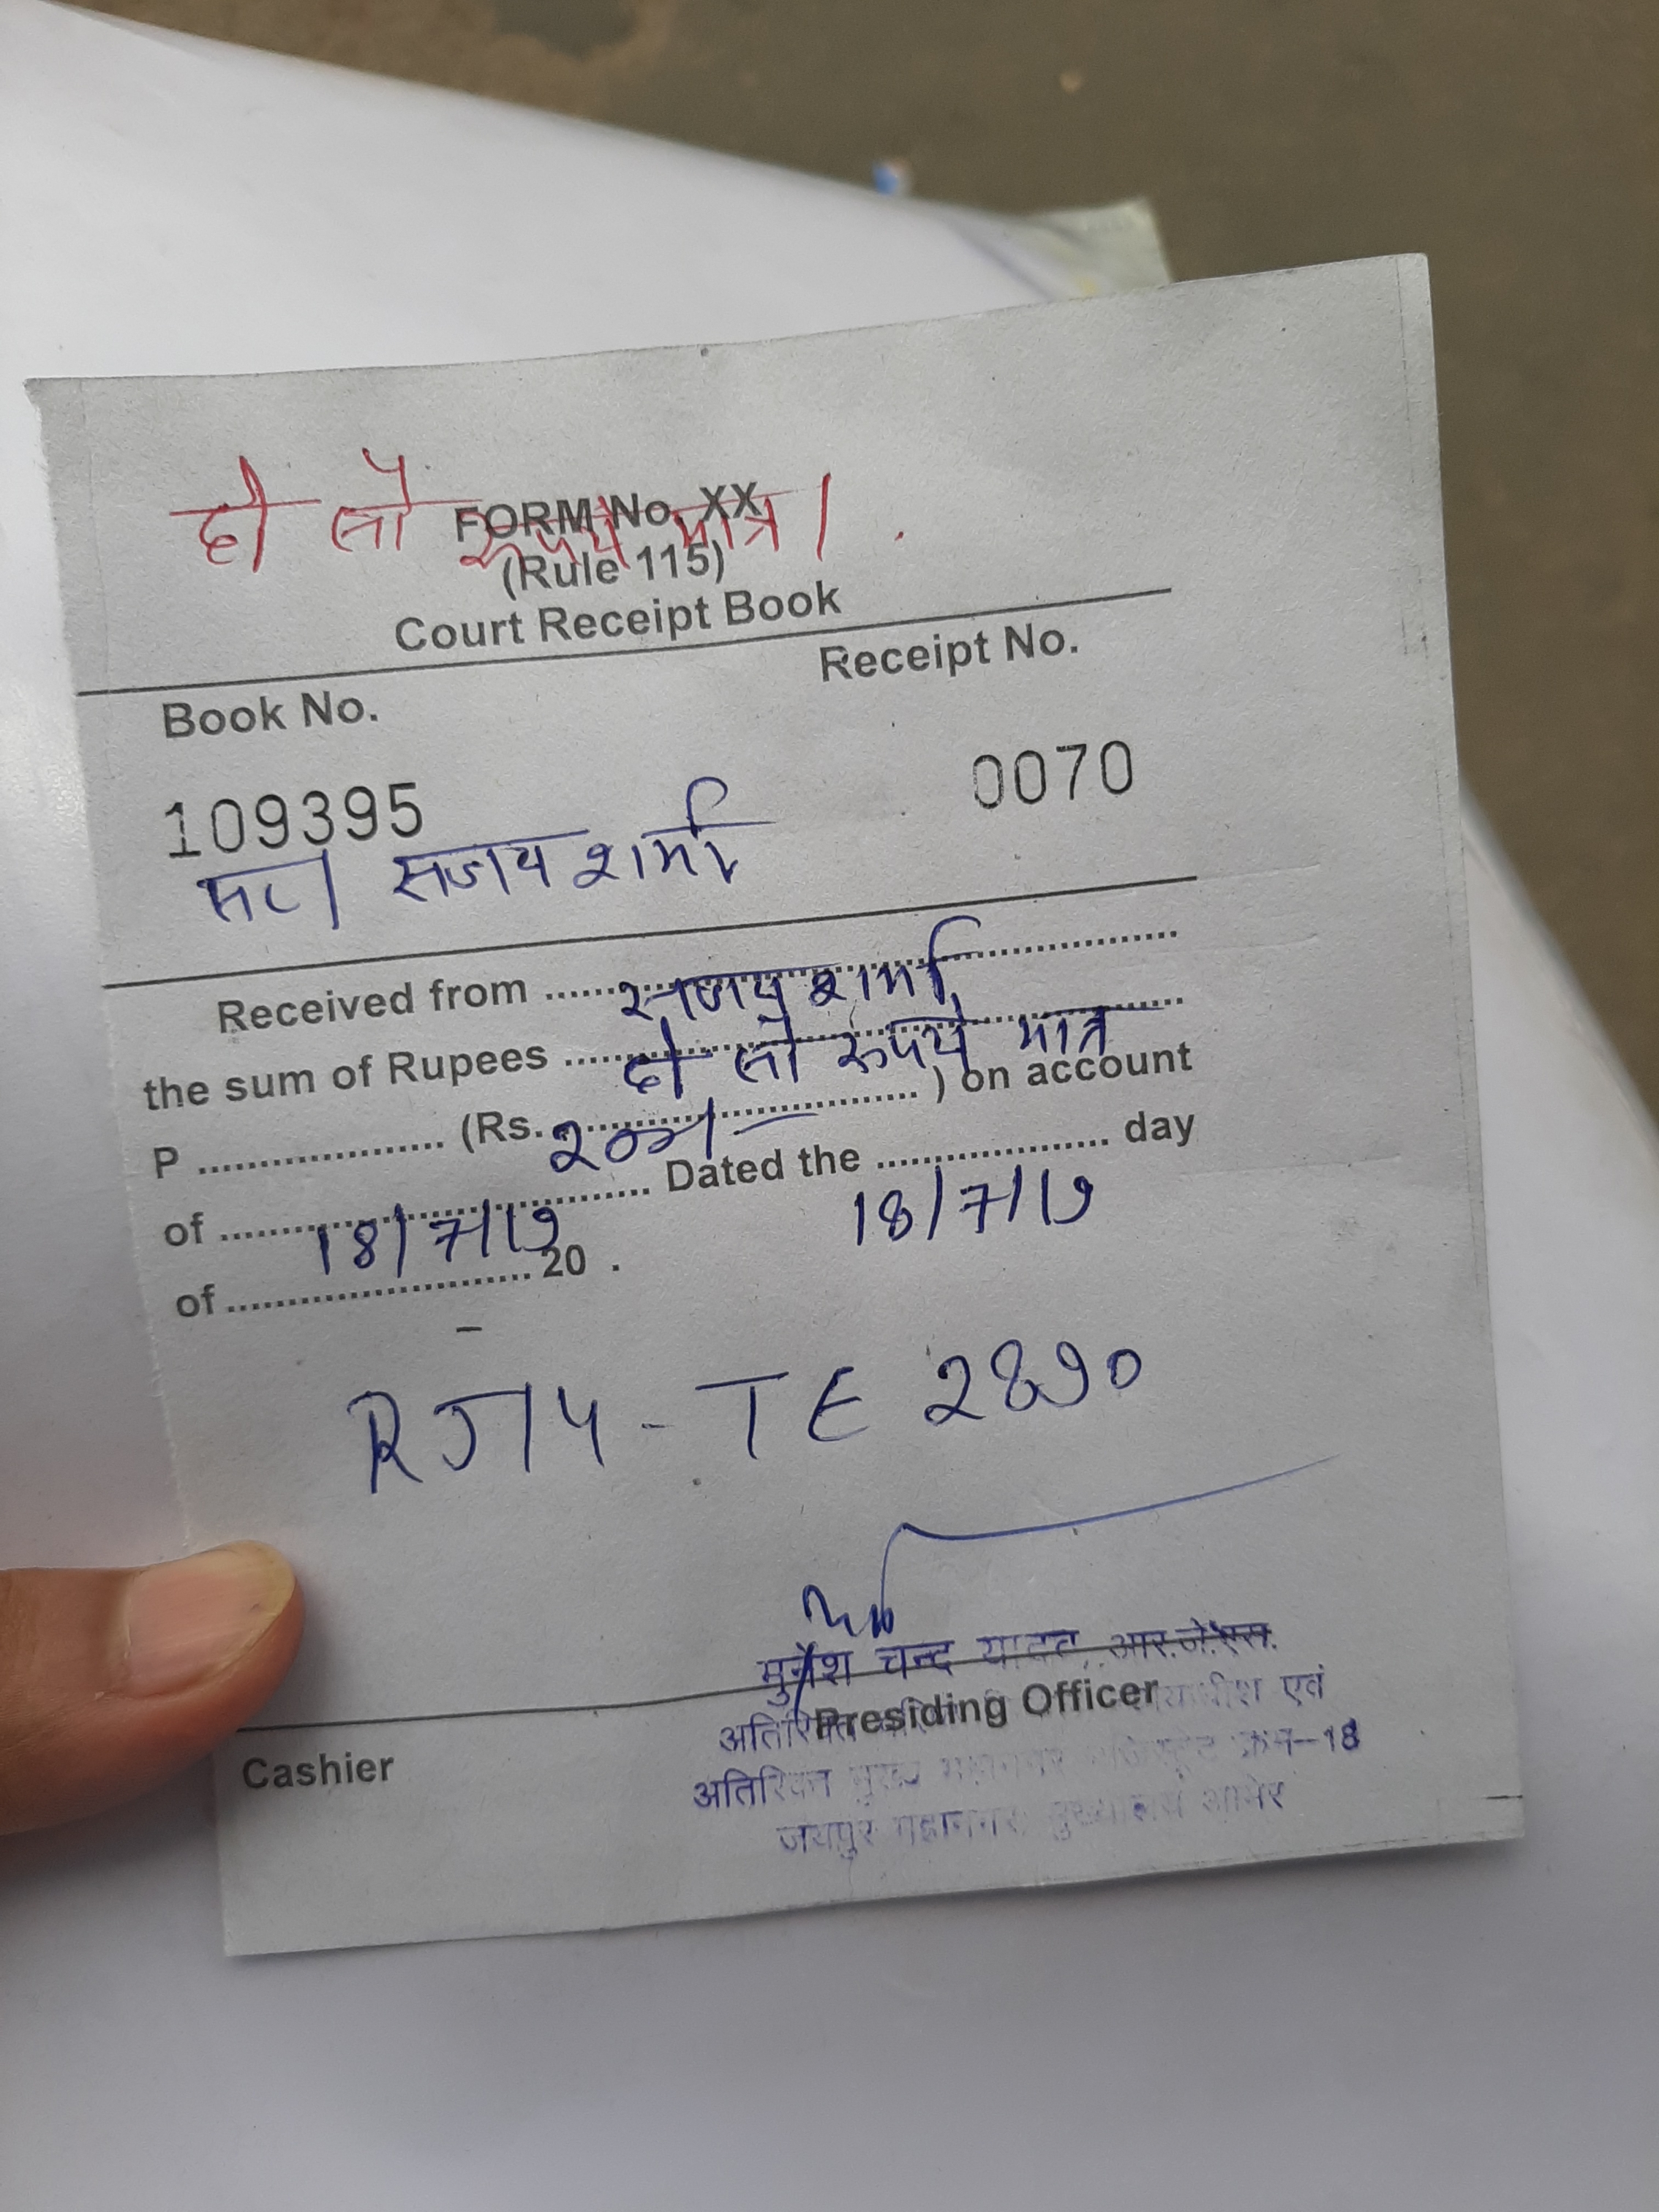 दो सौ रुपये मात्र।
FORM No. XX
(Rule 115)
Court Receipt Book
Book No. Receipt No.
109395 0070
संजय शर्मा
Received from संजय शर्मा
the sum of Rupees दो सौ रुपये मात्र
P (Rs. २००/- ) on account
of 18/7/19 Dated the 18/7/19 day
of 20 .
RJ14-TE 2890
मुनेश चन्द यादव, आर.जे.एस.
Presiding Officer
अतिरिक्त एवं
अतिरिक्त मुख्य महानगर क्रम-18
जयपुर महानगर मुख्यालय आमेर
Cashier